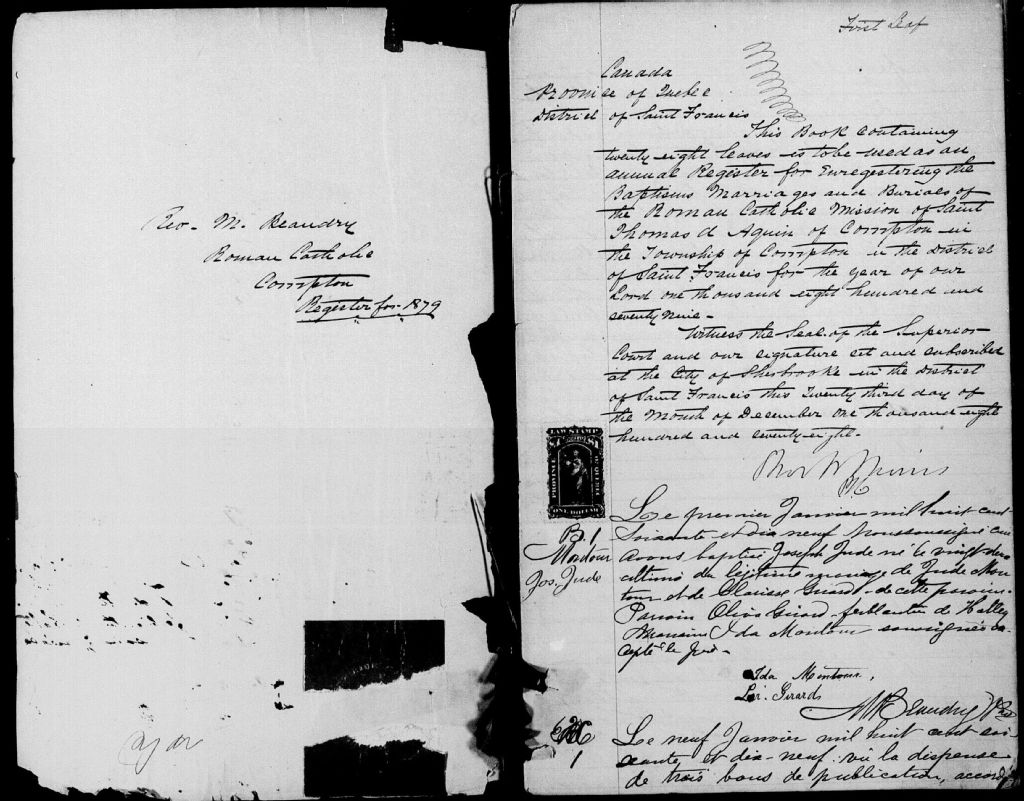 Rev. M. Beaudry
Roman Catholic
Compton
Register for 1879
First Leaf
Canada
Province of Quebec
District of Saint Francis
This Book containing
twenty eight leaves is to be used as an
annual Register for Enregistering the
Baptisms Marriages and Burials of
the Roman Catholic Mission of Saint
Thomas d Aquin of Compton in
the Township of Compton in the District
of Saint Francis for the year of our
Lord one thousand eight hundred and
seventy nine -
Witness the Seal of the Superior
Court and our signature set and subscribed
at the City of Sherbrooke in the District
of Saint Francis this Twenty third day of
the Month of December one thousand eight
hundred and seventy eight -
LAW STAMP
$1 $1
PROVINCE OF QUEBEC
ONE DOLLAR
B. 1
Montour
Jos. Jude
Le premier Janvier mil huit cent
soixante et dix neuf nous soussigné curé
avons baptisé Joseph Jude né le vingt
ultimo du légitime mariage de Jude Mon
tour et de Clarisse Girard de cette paroisse
Parrain Girard ferblantier de Hatley
Marraine Ida Montour soussignés
le
Ida Montour,
Girard
M Beaudry Ptre
1
Le neuf Janvier mil huit cent soi
xante, et dix-neuf vu la dispense
de trois bans de publication, accord